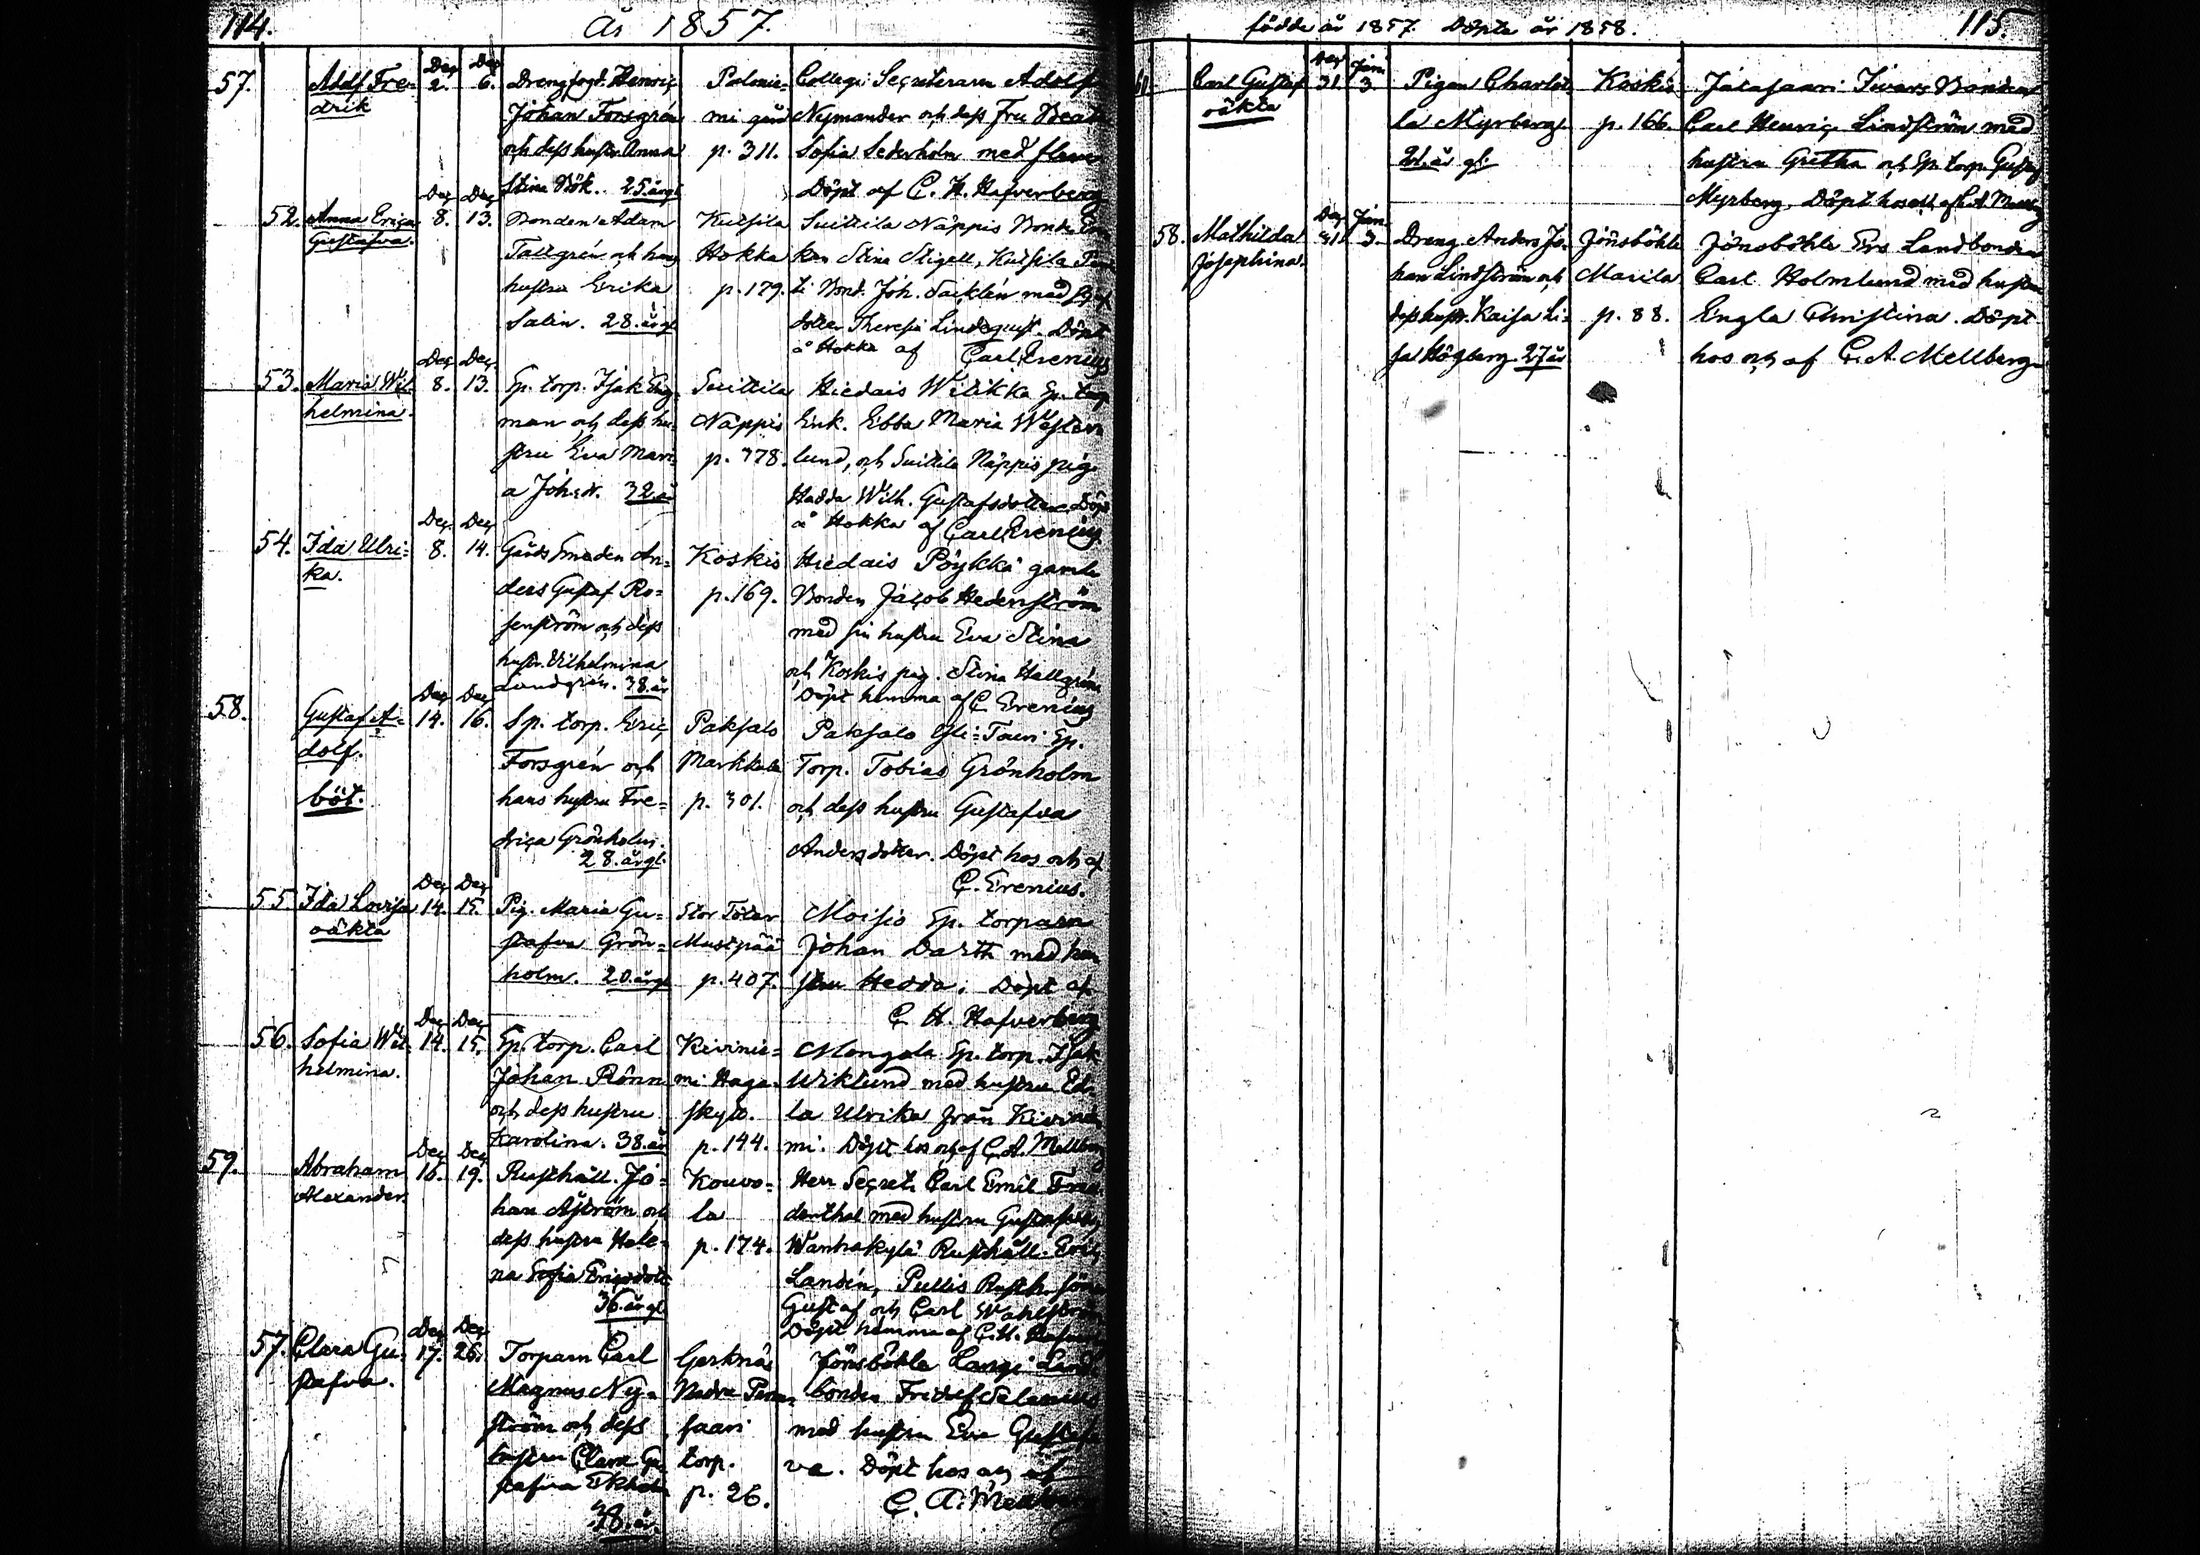 114.
År 1857.
57.
Adolf Fre=
drik
Dec. 2.
Dec. 6.
Drengfogd. Henric
Johan Forsgrén
och dess hustru Anna
Stina Bök. 25 år gl.
Poloni=
mi gård
p. 311.
Collegii Secreteraren Adolf
Nymander och dess Fru Beata
Sofia Sederholm med flere
Döpt af C. H. Hafverberg
52.
Anna Erica
Gustafva.
Dec. 8.
Dec. 13.
Bonden Adam
Tallgrén och hans
hustru Erika
Salin. 28 år gl.
Kutsila
Hokka
p. 179.
Suittila Näppis
Stina Stigell, Kutsila
Bond. Joh. Tacklén med
dotter Theresia Lindqvist. Döpt
å Hokka af Carl Erenius
53.
Maria Wil=
helmina.
Dec. 8.
Dec. 13.
Sp. torp. Isak Eng=
man och dess hu=
stru Eva Mari=
a Joh:dr. 32 år
Suittila
Näppis
p. 378.
Hiedais Wilikka Sp. torp
Enk. Ebba Maria Wester
lund, och Suittila Näppis pig.
Hedda Wilh. Gustafsdotter. Döpt
å Hokka af Carl Erenius.
54.
Ida Ulri=
ka.
Dec. 8.
Dec. 14.
Gårds Smeden An=
ders Gustaf Ro=
senström och dess
hustr. Vilhelmina
Lundgrén. 38 år
Koskis
p. 169.
Hiedais Pöykkä gamle
Bonden Jacob Hedenström
med sin hustru Eva Stina
och Koskis pig. Stina Hallgrén
Döpt hemma af C. Erenius
58.
Gustaf A=
dolf.
böt.
Dec. 14.
Dec. 16.
Sp. torp. Eric
Forsgrén och
hans hustru Fre=
drica Grönholm.
28. år gl.
Paksalo
Markkula
p. 301.
Paksalo Yli=Touri Sp.
Torp. Tobias Grönholm
och dess hustru Gustafva
Andersdotter. Döpt hos och af
C. Erenius.
55.
Ida Lovisa
oäkta
Dec. 14.
Dec. 15.
Pig. Maria Gu=
stafva Grön=
holm. 20 år gl.
Stor Töter
Mustpää
p. 407.
Moisio Sp. torparn
Johan Darth med hu
stru Hedda. Döpt af
C. H. Hafverberg
56.
Sofia Wil=
helmina.
Dec. 14.
Dec. 15.
Sp. torp. Carl
Johan Rönn
och dess hustru
Karolina. 38 år
Kivinie=
mi Haga=
skytt.
p. 144.
Mongola Sp. torp. Isak
Wiklund med hustru Ed=
la Ulrika från Kivinie
mi. Döpt hos och af C. A. Mellberg
59.
Abraham
Alexander.
Dec. 16.
Dec. 19.
Rusthåll. Jo=
han Åström och
dess hustru Hele=
na Sofia Ericsdott.
36 år gl.
Kouvo=
la
p. 174.
Herr Secret. Carl Emil
med hustru
Wanhakylä Rusthåll. Eric
Landén, Pullis Rusth. söner
Gustaf och Carl Wahlström
Döpt hemma af C. H. Hafverb.
57.
Clara Gu=
stafva.
Dec. 17.
Dec. 26.
Torparn Carl
Magnus Ny=
ström och dess
hustru Clara Gu=
stafva Ekholm
38. år.
Gerknäs
Nedre
saari
torp.
p. 26.
Jönsböhle Langi Land
bonden Fridolf Selenius
med hustru Eva Gustaf
va. Döpt hos och af
C. A. Mellberg
födde år 1857. Döpte år 1858.
115.
Carl Gustaf
oäkta
Dec. 31.
Jan. 3.
Pigan Charlot=
ta Myrberg
21 år gl.
Koskis
p. 166.
Jalasaari Iwars Bonden
Carl Henric Lindström med
hustru Gretha och Sp. torp. Gustaf
Myrberg. Döpt hos
58.
Mathilda
Josephina.
Dec. 31.
Jan. 3.
Dreng Anders Jo=
han Lindström och
dess hustr. Kaisa Li=
sa Högberg. 27 år
Jönsböhle
Marila
p. 88.
Jönsböhle Ers Landbonden
Carl Holmlund med hustru
Engla Christina. Döpt
hos och af C. A. Mellberg